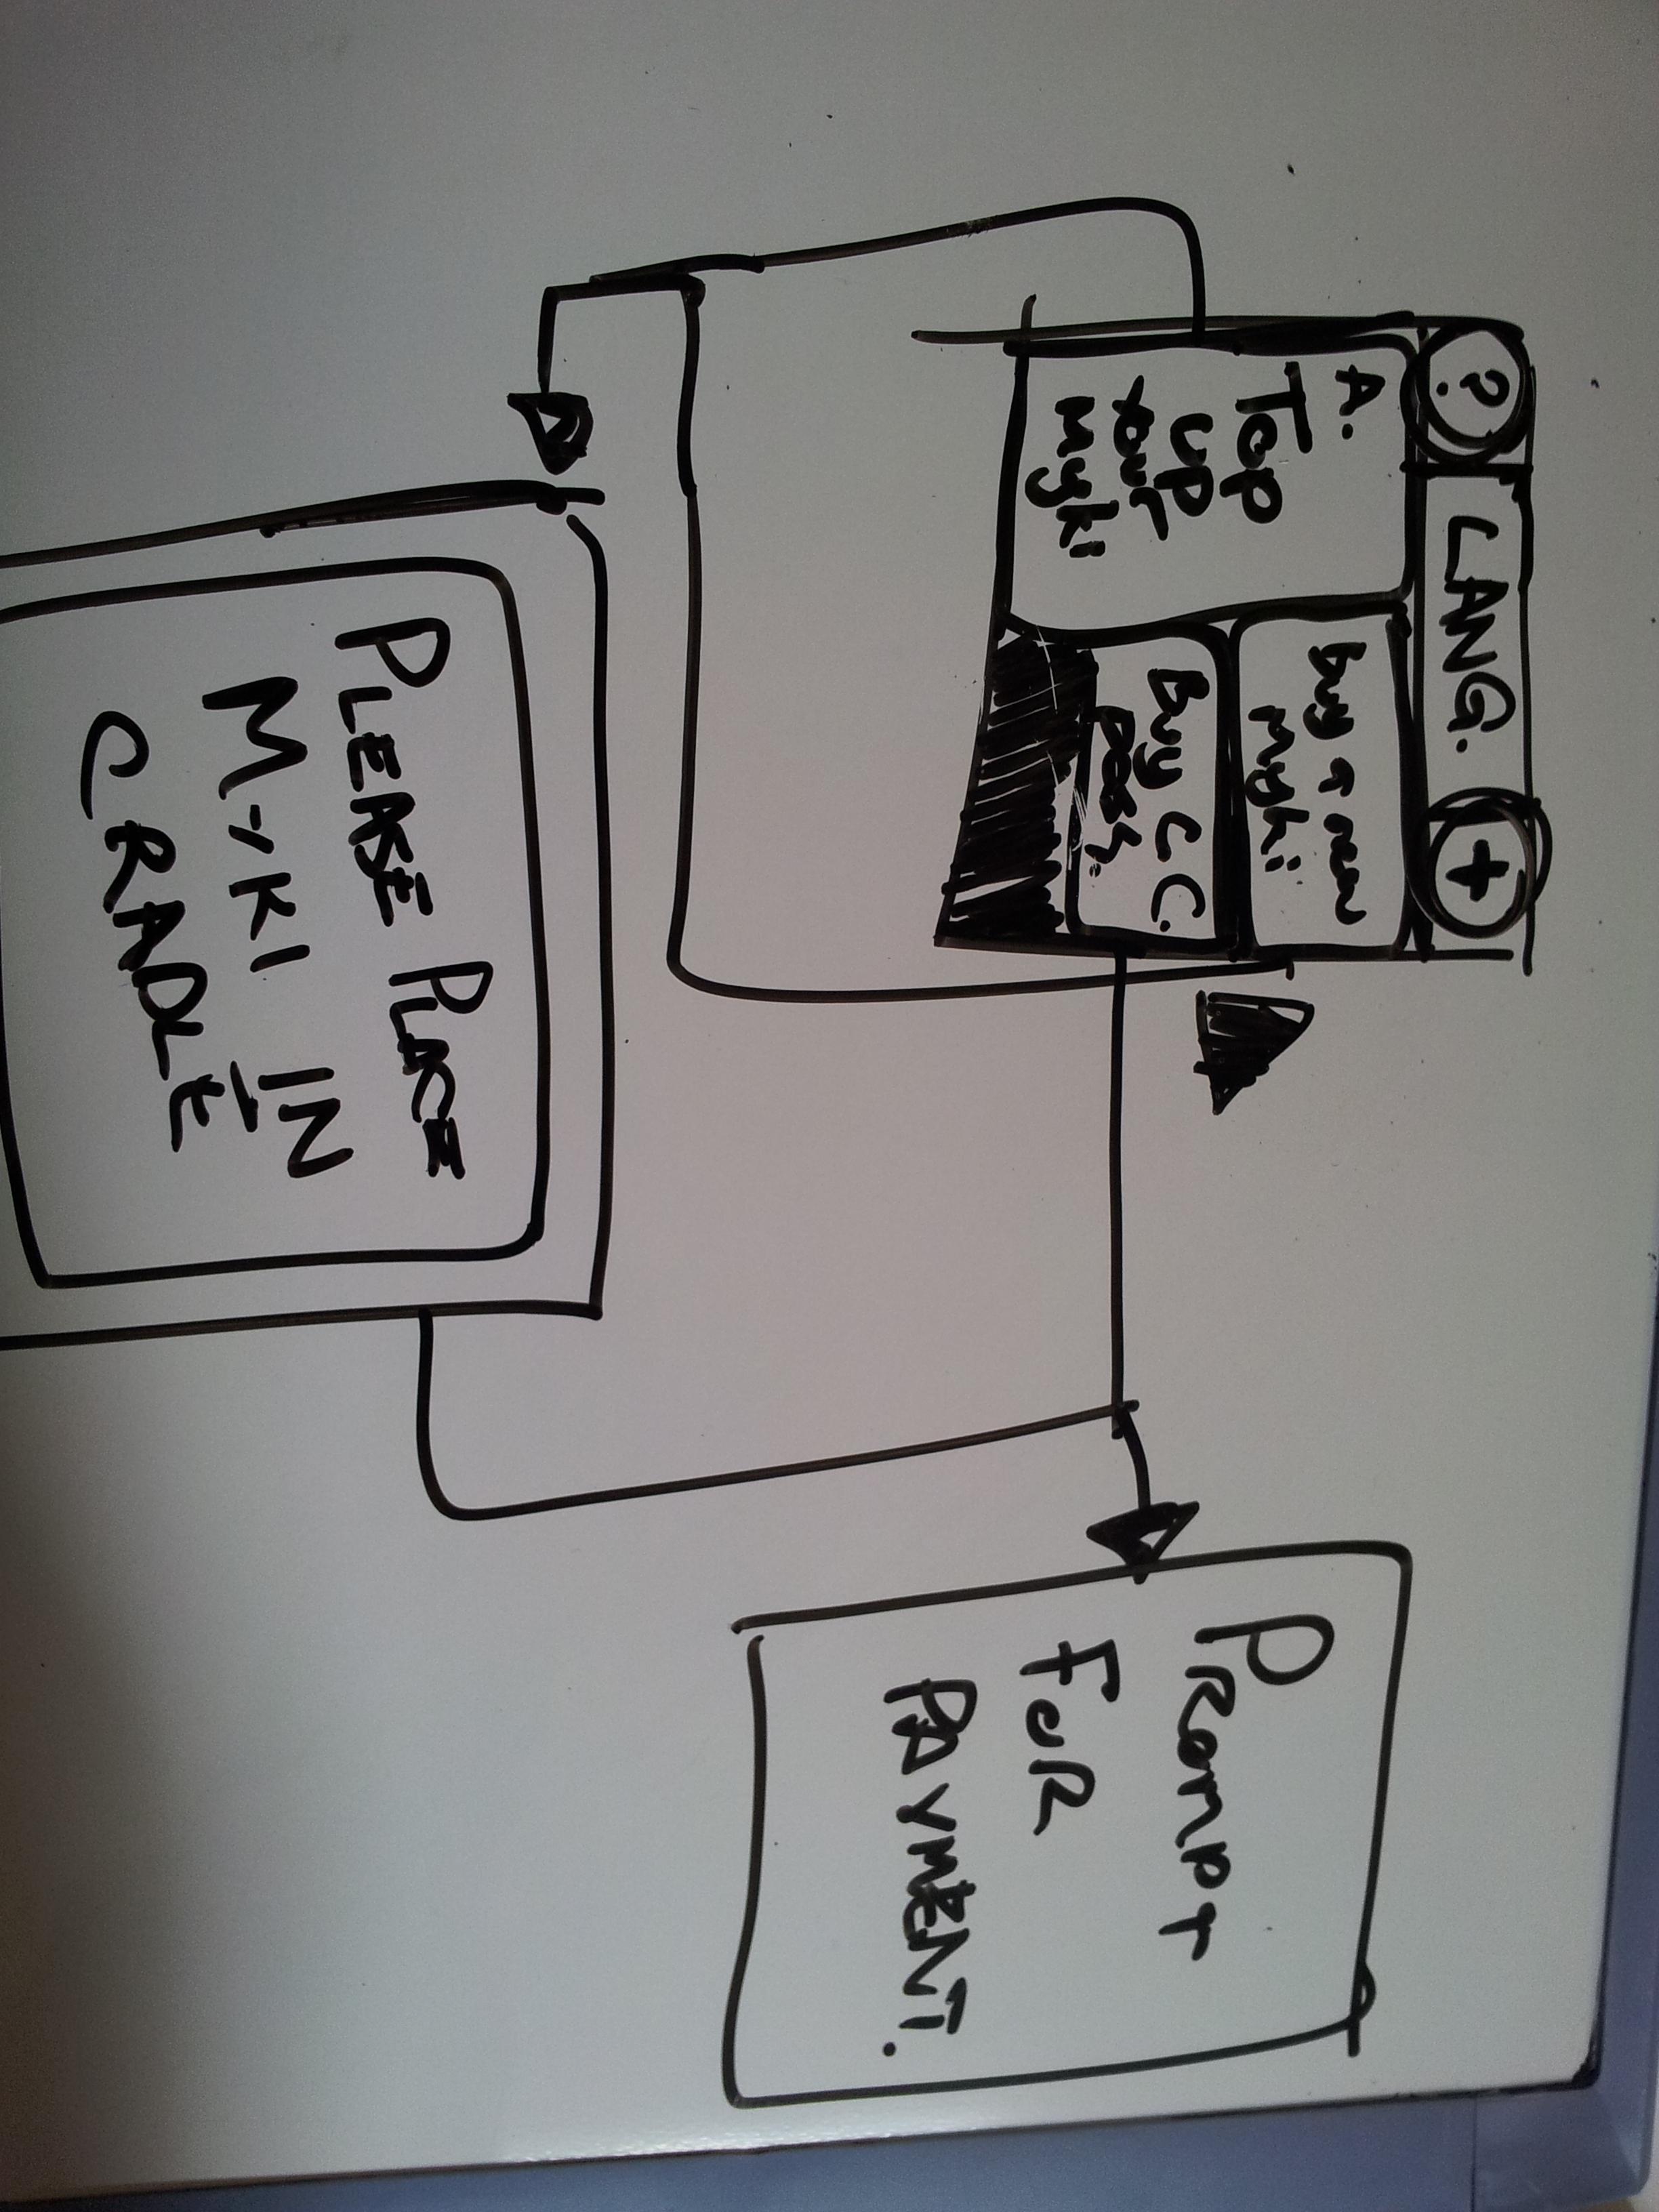 ? LANG. +
A.
Top
up
your
Myki
Buy a new
Myki
Buy C.C.
pass.
PROMPT
FOR
PAYMENT.
PLEASE PLACE
MYKI IN
CRADLE